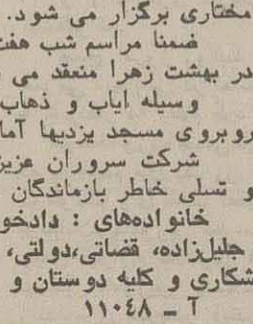 مختاری برگزار می شود.
ضمنا مراسم شب هفت
در بهشت زهرا منعقد می
وسیله ایاب و ذهاب
روبروی مسجد یزدیها آما
شرکت سروران عزیز
و تسلی خاطر بازماندگان
خانواده‌های : دادخو
جلیل‌زاده، قضاتی،دولتی،
شکاری و کلیه دوستان و
آ ــ ۱۱۰۴۸